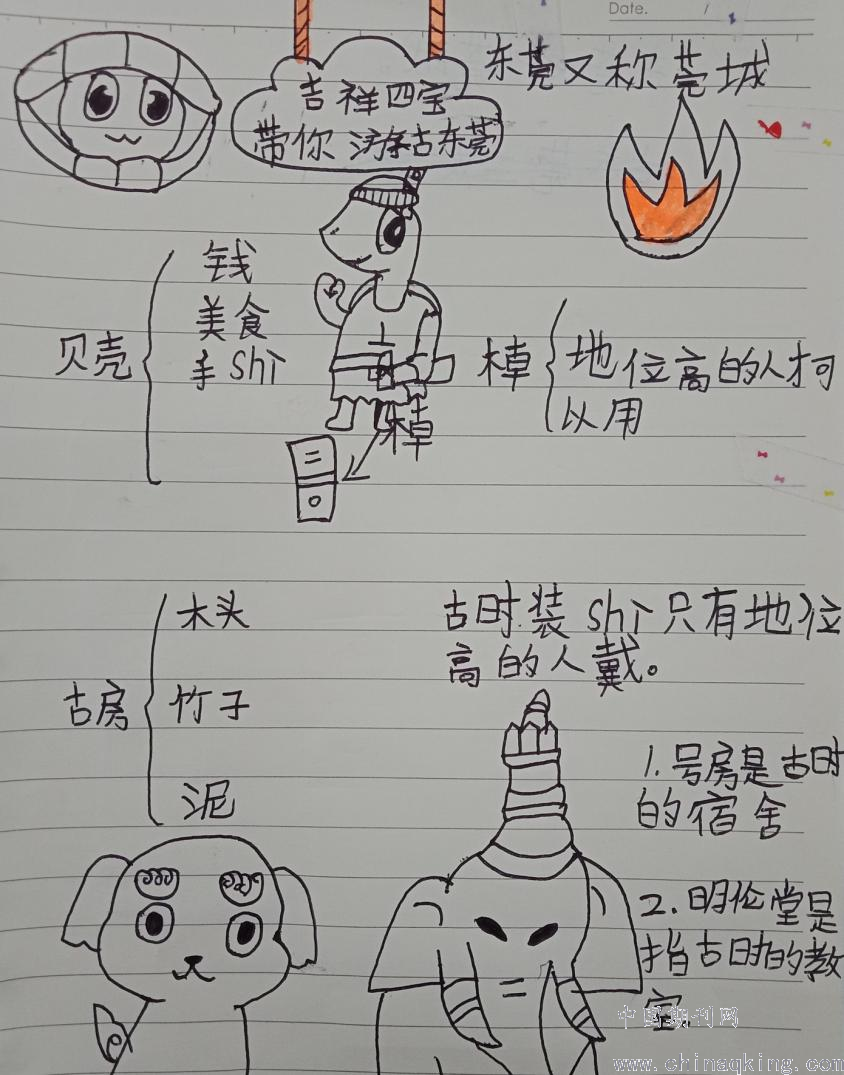 Date. /
吉祥四宝
带你游古东莞
东莞又称莞城
贝壳
钱
美食
手shì
棹
地位高的人才可
以用
棹
二
古房
木头
竹子
泥
古时装shì只有地位
高的人戴。
1.号房是古时
的宿舍
2.明伦堂是
指古时的教
室
中国期刊网
www.chinaqking.com